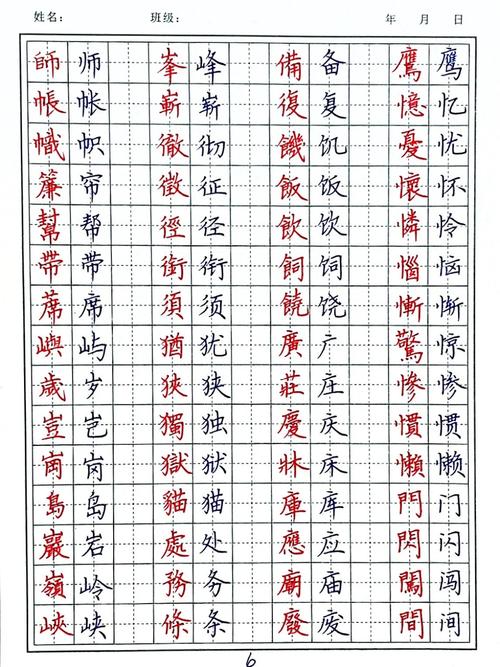 姓名： 班级： 年 月 日
師 师 峯 峰 備 备 鷹 鹰
帳 帐 嶄 崭 復 复 憶 忆
幟 帜 徹 彻 饑 饥 憂 忧
簾 帘 徵 征 飯 饭 懷 怀
幫 帮 徑 径 飲 饮 憐 怜
帶 带 銜 衔 飼 饲 惱 恼
蓆 席 須 须 饒 饶 慚 惭
嶼 屿 猶 犹 廣 广 驚 惊
歲 岁 狹 狭 莊 庄 慘 惨
豈 岂 獨 独 慶 庆 慣 惯
崗 岗 獄 狱 牀 床 懶 懒
島 岛 貓 猫 庫 库 門 门
巖 岩 處 处 應 应 閃 闪
嶺 岭 務 务 廟 庙 闖 闯
峽 峡 條 条 廢 废 間 间
6